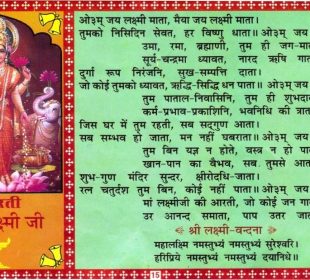 ओ३म् जय लक्ष्मी माता, मैया जय लक्ष्मी माता।
तुमको निसिदिन सेवत, हर विष्णु धाता॥ओ३म् जय
उमा, रमा, ब्रह्माणी, तुम ही जग-मा
सूर्य-चन्द्रमा ध्यावत, नारद ऋषि गा
दुर्गा रूप निरंजनि, सुख-सम्पत्ति दाता।
जो कोई तुमको ध्यावत, ऋद्धि-सिद्धि धन पाता॥ओ३म् जय
तुम पाताल-निवासिनि, तुम ही शुभदा
कर्म-प्रभाव-प्रकाशिनि, भवनिधि की त्रात
जिस घर में तुम रहती, सब सद्गुण आता।
सब सम्भव हो जाता, मन नहीं घबराता॥ओ३म् जय
तुम बिन यज्ञ न होते, वस्त्र न हो पा
खान-पान का वैभव, सब तुमसे आ
शुभ-गुण मंदिर सुन्दर, क्षीरोदधि-जाता।
रत्न चतुर्दश तुम बिन, कोई नहीं पाता॥ओ३म् जय
मां लक्ष्मीजी की आरती, जो कोई जन गा
उर आनन्द समाता, पाप उतर जा
श्री लक्ष्मी-वन्दना
महालक्ष्मि नमस्तुभ्यं नमस्तुभ्यं सुरेश्वरि।
हरिप्रिये नमस्तुभ्यं नमस्तुभ्यं दयानिधे॥
रती
क्ष्मी जी
15